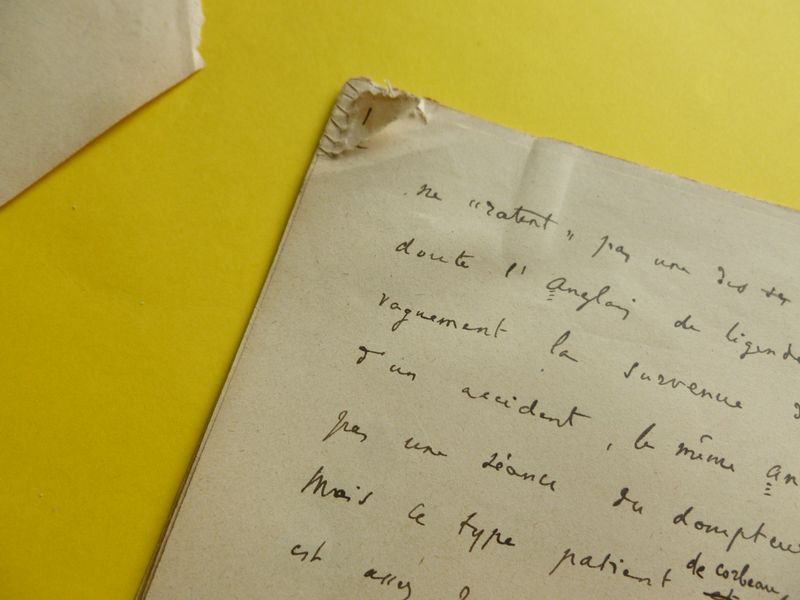 ne "ratent" pas une des
doute l'anglais de légende
vaguement la survenue d
d'un accident, le même an
pas une séance du dompteur
Mais ce type patient de corbeau,
est assez